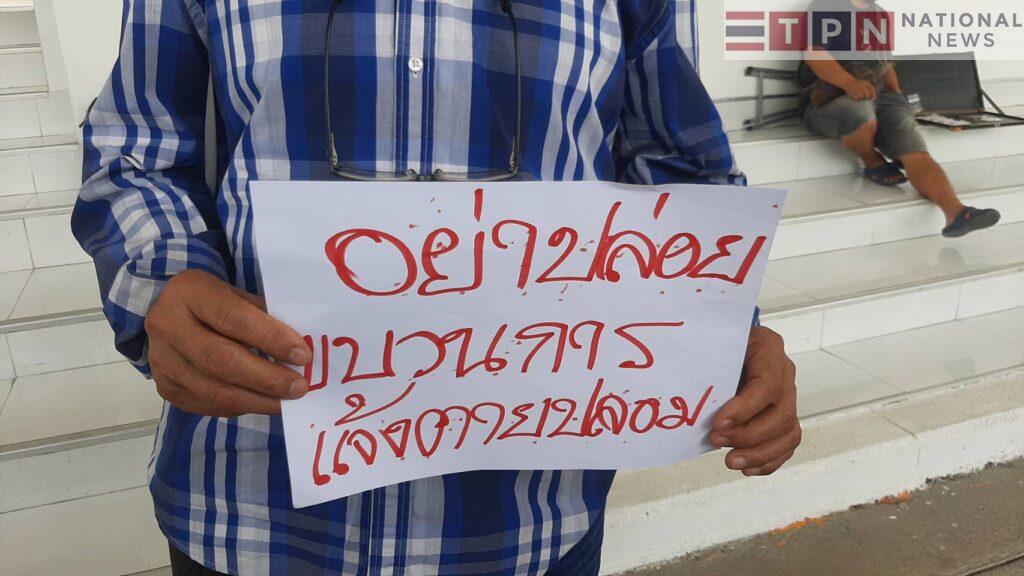 TPN NATIONAL
NEWS
อย่าปล่อย
ขบวนการ
แจ้งตายปลอม